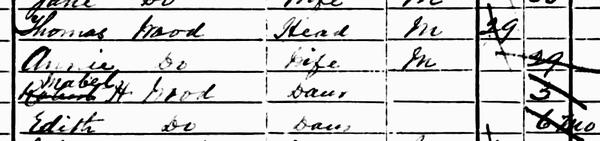 Jane Do Wife M
Thomas Wood Head M 29
Annie Do Wife M 29
Mabel H Wood Daur 3
Edith Do Daur 6 Mo